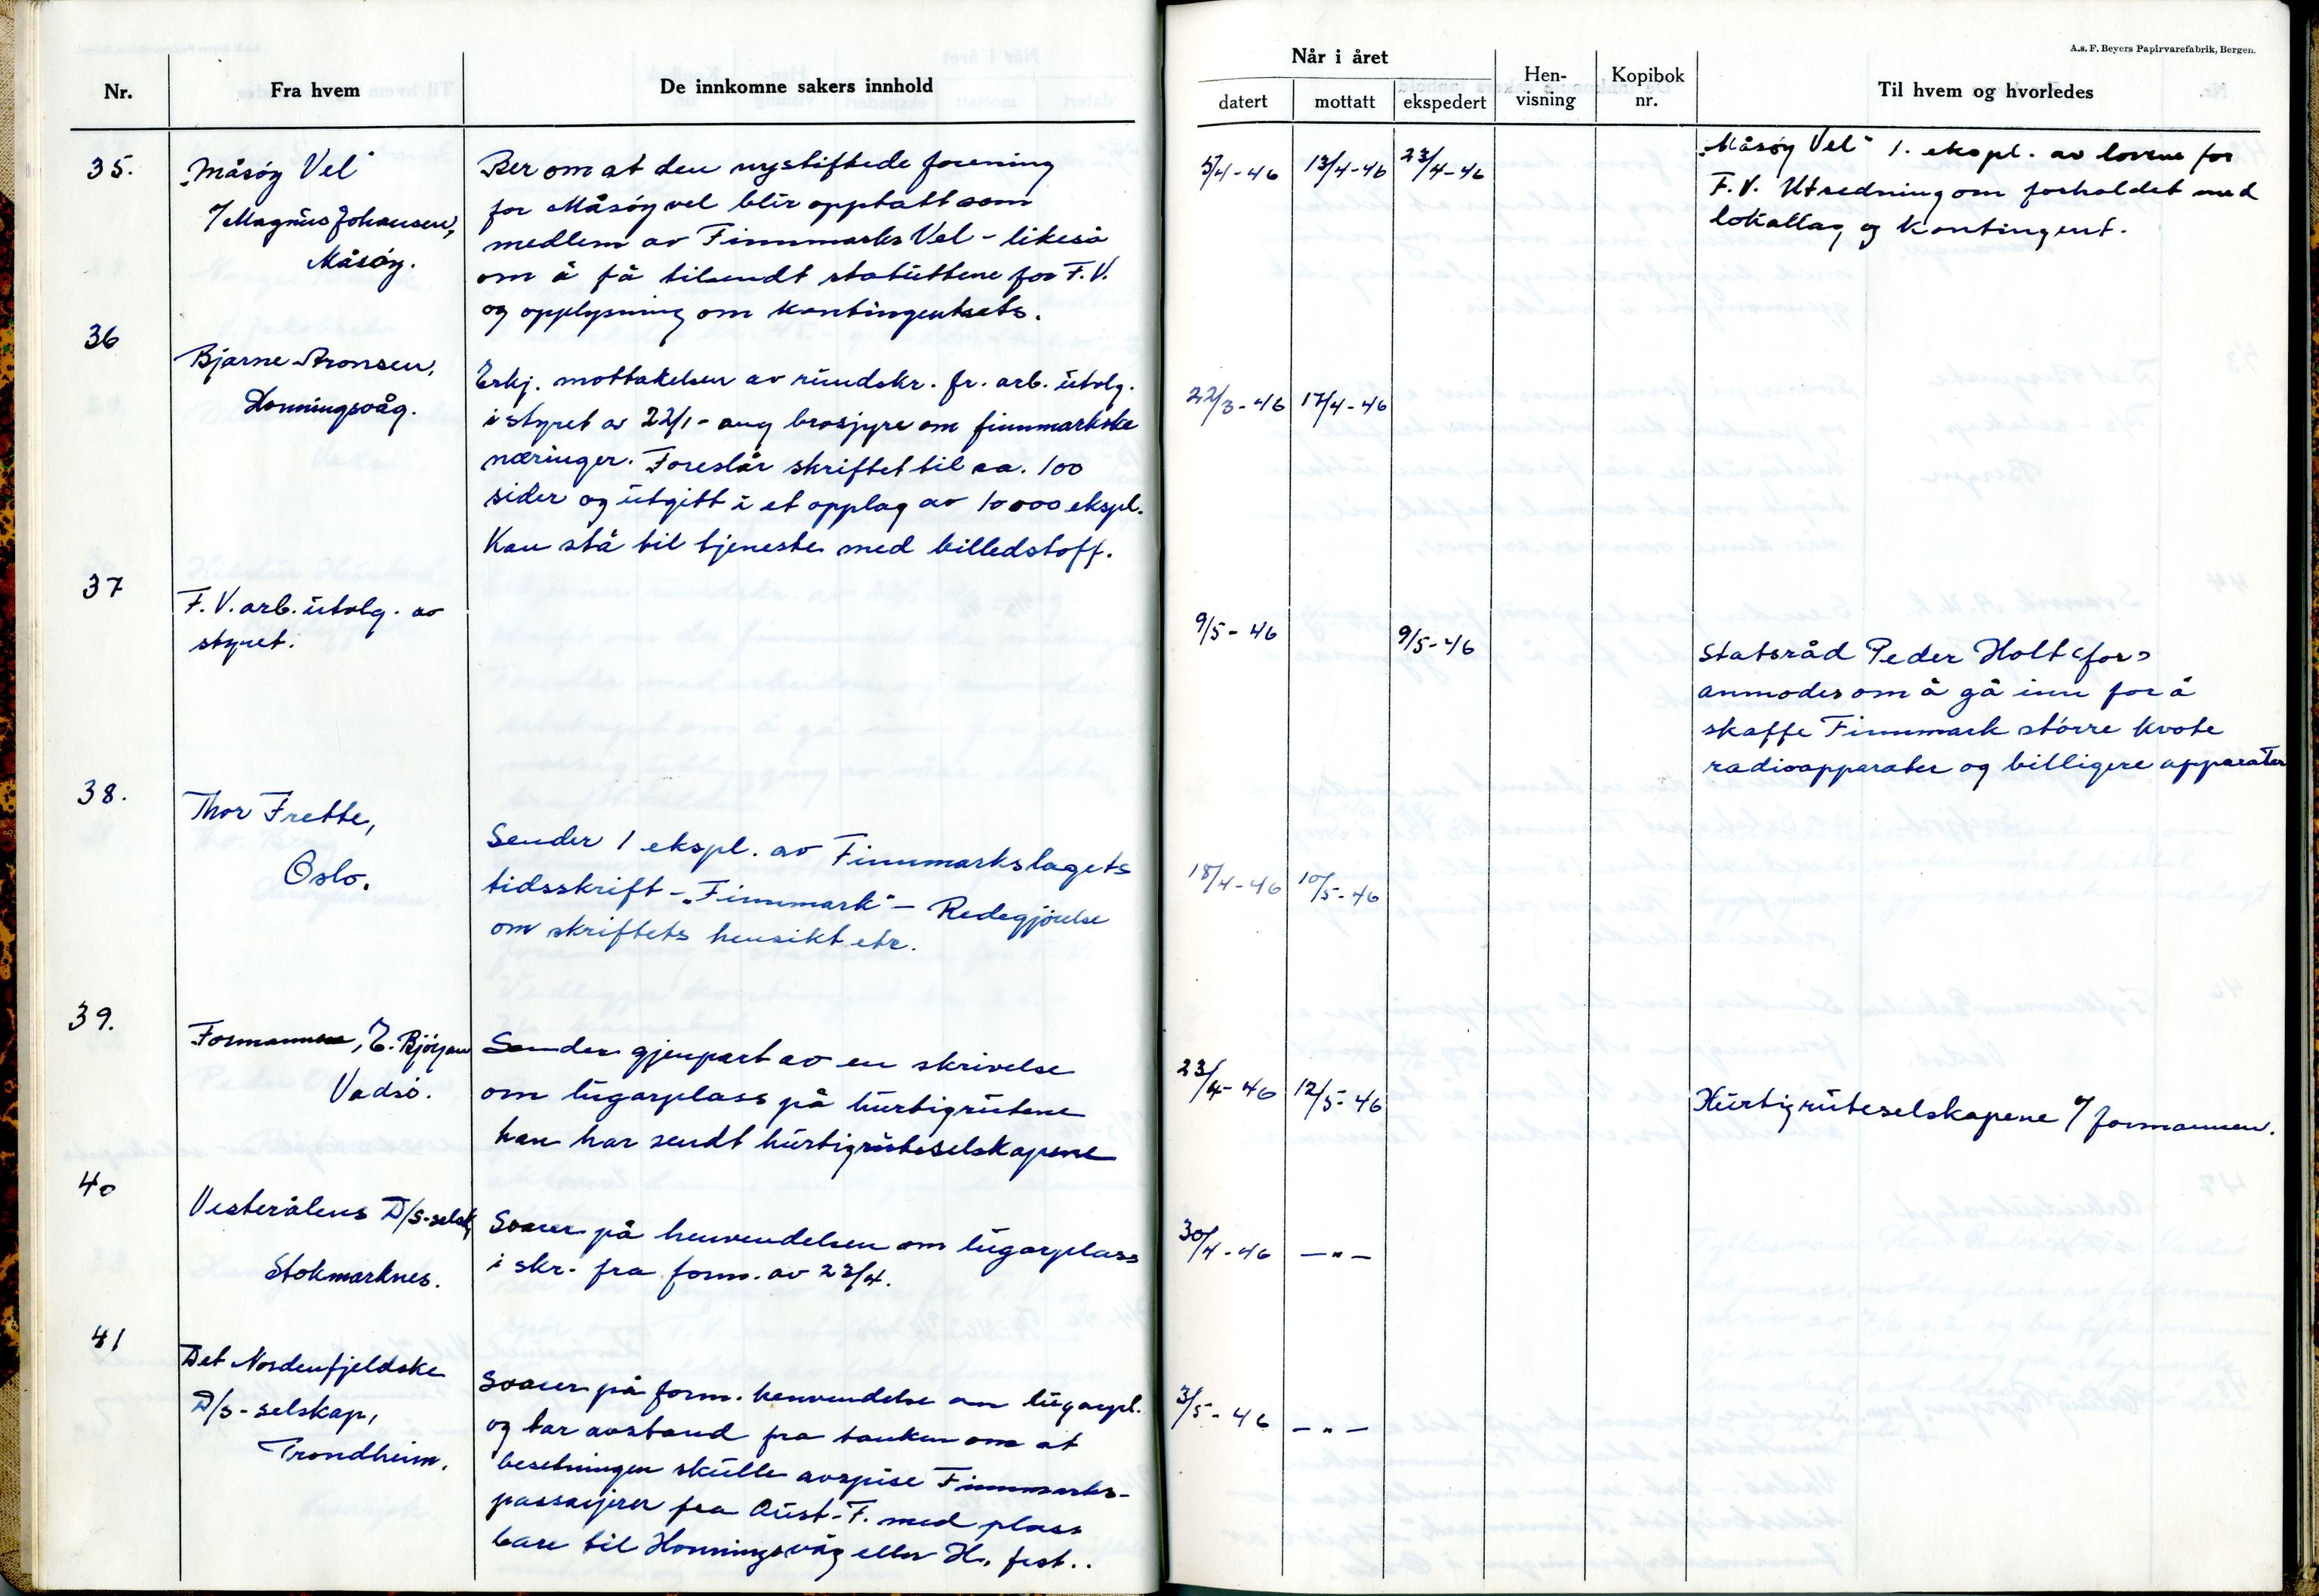 A.s. F. Beyers Papirvarefabrik, Bergen.
Nr. Fra hvem De innkomne sakers innhold
Når i året
datert mottatt ekspedert Hen-visning Kopibok nr. Til hvem og hvorledes
35.
„Måsøy Vel"
v/ Magnus Johansen,
Måsøy.
Ber om at den nystiftede forening
for Måsøy vel blir opptatt som
medlem av Finnmarks Vel - likeså
om å få tilsendt statuttene for F.V.
og opplysning om kontingentsats.
5/4-46 13/4-46 23/4-46
„Måsøy Vel" 1. ekspl. av lovene for
F.V. Utredning om forholdet med
lokallag og kontingent.
36
Bjarne Aronsen,
Honningsvåg.
Erkj. mottakelsen av rundskr. fr. arb. utvlg.
i styret av 22/1 - ang brosjyre om finnmarkske
næringer. Foreslår skriftet til ca. 100
sider og utgitt i et opplag av 10000 ekspl.
Kan stå til tjeneste med billedstoff.
22/3-46 17/4-46
37
F.V. arb. utvlg. av
styret.
9/5-46 9/5-46
Statsråd Peder Holt <for>
anmodes om å gå inn for å
skaffe Finnmark större kvote
radioapparater og billigere apparater
38.
Thor Frette,
Oslo.
Sender 1 ekspl. av Finnmarkslagets
tidsskrift - „Finnmark" - Redegjörelse
om skriftets hensikt etc.
18/4-46 10/5-46
39.
Formannen, E. Björjan
Vadsö.
Sender gjenpart av en skrivelse
om lugarplass på hurtigrutene
han har sendt hurtigruteselskapene
23/4-46 12/5-46
Hurtigruteselskapene v/ formannen.
40
Vesterålens D/s-selsk,
Stokmarknes.
Svarer på henvendelsen om lugarplass
i skr. fra form. av 23/4.
30/4-46 -"-
41
Det Nordenfjeldske
D/s-selskap,
Trondheim.
Svarer på form. henvendelse om lugarpl.
og tar avstand fra tanken om at
besetningen skulle avspise Finnmarks-
passasjerer fra Aust-F. med plass
bare til Honningsvåg eller H. fest..
3/5-46 -"-